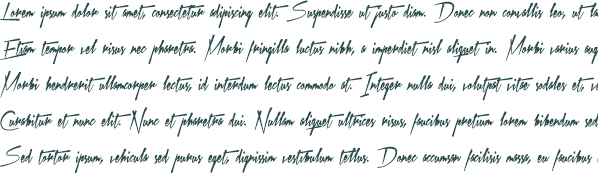 Lorem ipsum dolor sit amet, consectetur adipiscing elit. Suspendisse ut justo diam. Donec non convallis leo, ut la
Etiam tempor vel risus nec pharetra. Morbi fringilla luctus nibh, a imperdiet nisl aliquet in. Morbi varius aug
Morbi hendrerit ullamcorper lectus, id interdum lectus commodo at. Integer nulla dui, volutpat vitae sodales et, ve
Curabitur et nunc elit. Nunc et pharetra dui. Nullam aliquet ultrices risus, faucibus pretium lorem bibendum sed
Sed tortor ipsum, vehicula sed purus eget, dignissim vestibulum tellus. Donec accumsan facilisis massa, eu faucibus